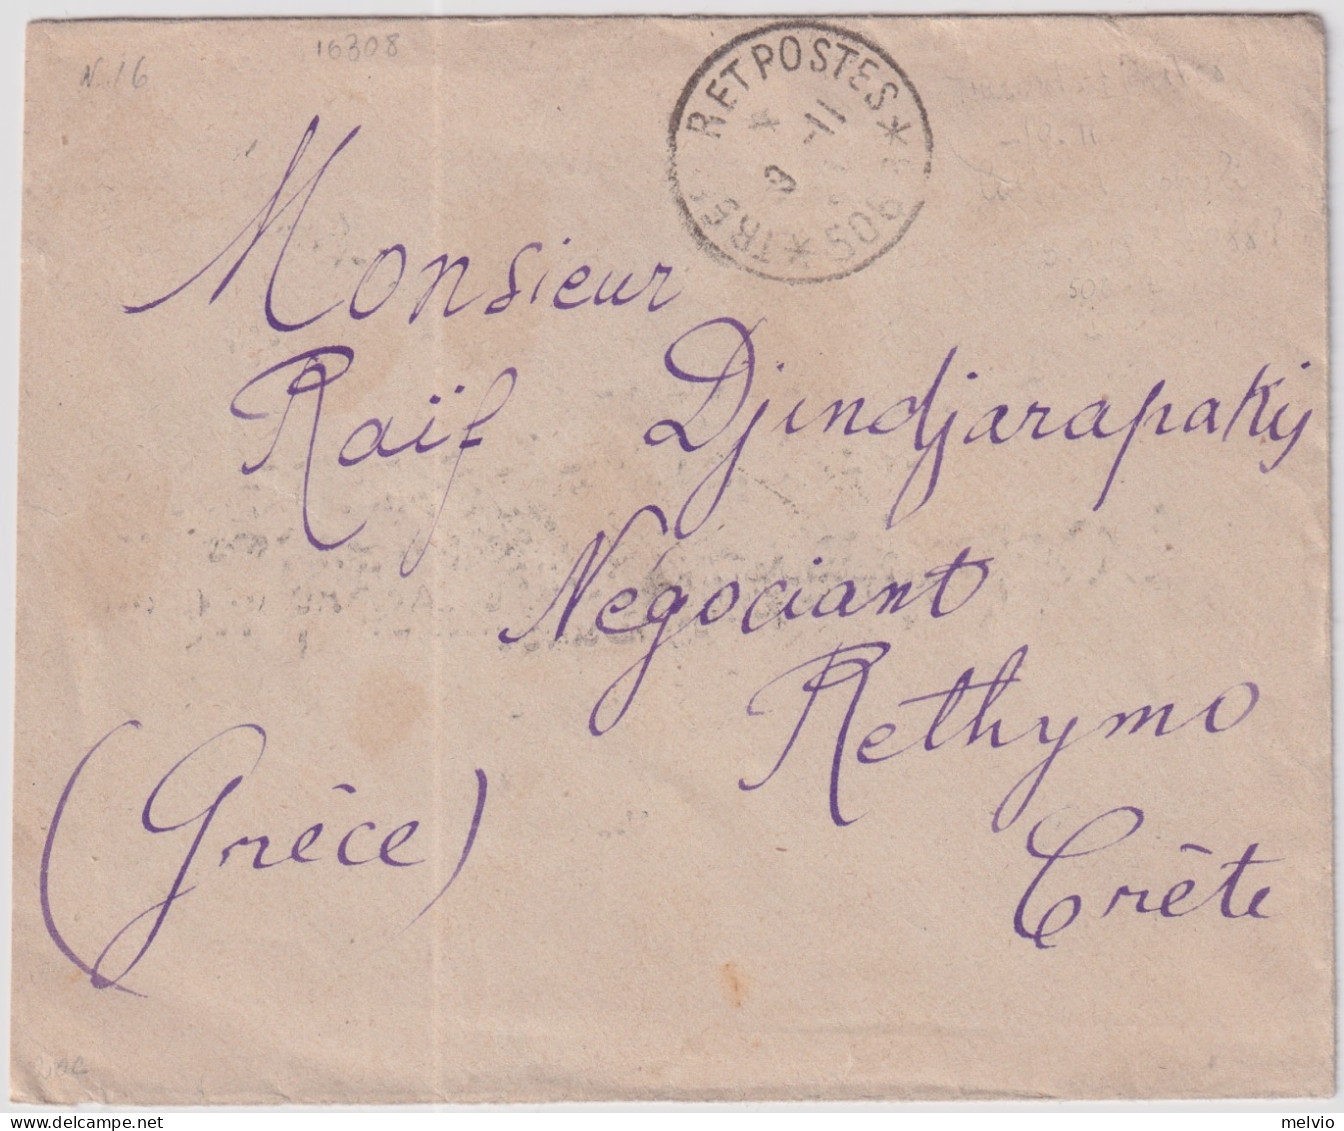 N.16
16308
TRÉS ET POSTES * 506 *
9 -11
Monsieur
Raïf Djindjarapakij
Négociant
Rethymo
Crête
(Grèce)
melvio